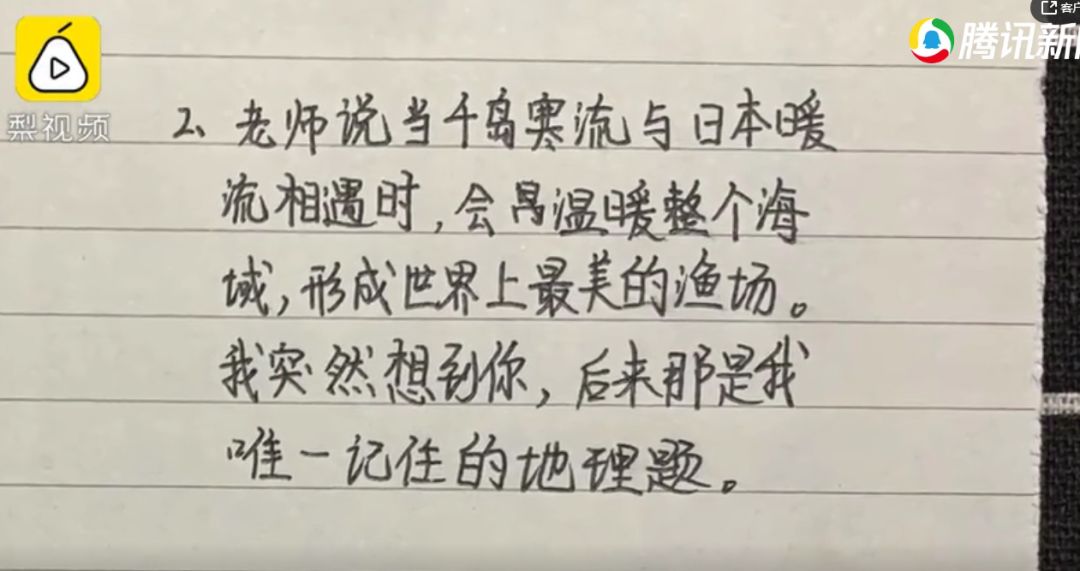 客户
腾讯新
梨视频
2、老师说当千岛寒流与日本暖
流相遇时，会温暖整个海
域，形成世界上最美的渔场。
我突然想到你，后来那是我
唯一记住的地理题。